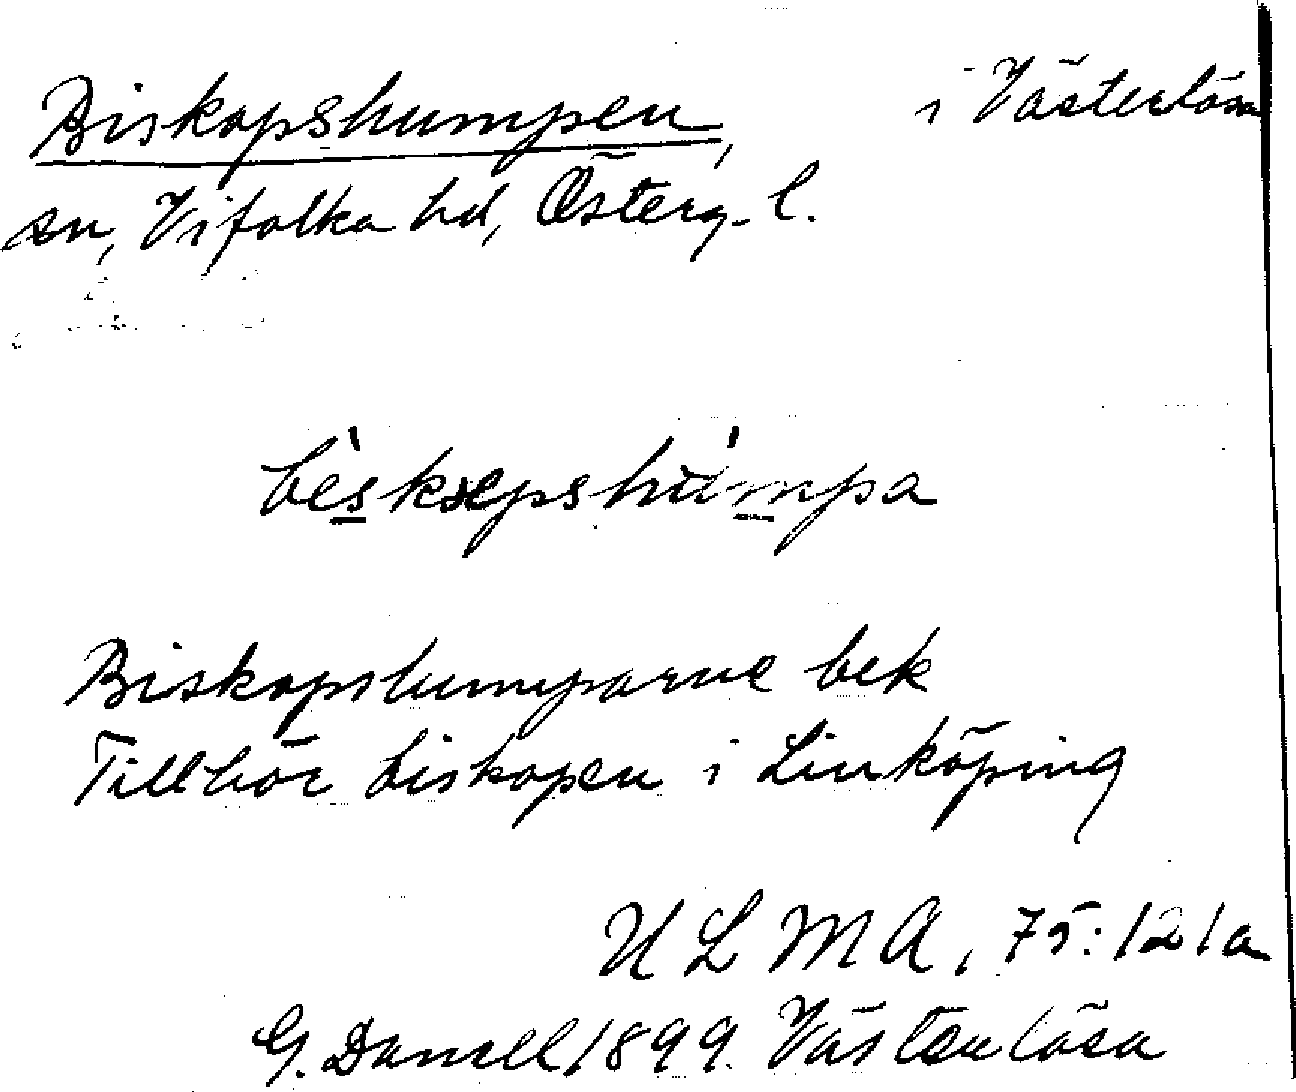 Biskopshumpen, i Västerlösa
sn, Vifolka hd, Österg. l.
bèskæpshúmpa
Biskopshumparne bek
Tillhör biskopen i Linköping
ULMA, 75:121a
G. Danell 1899. Västerlösa